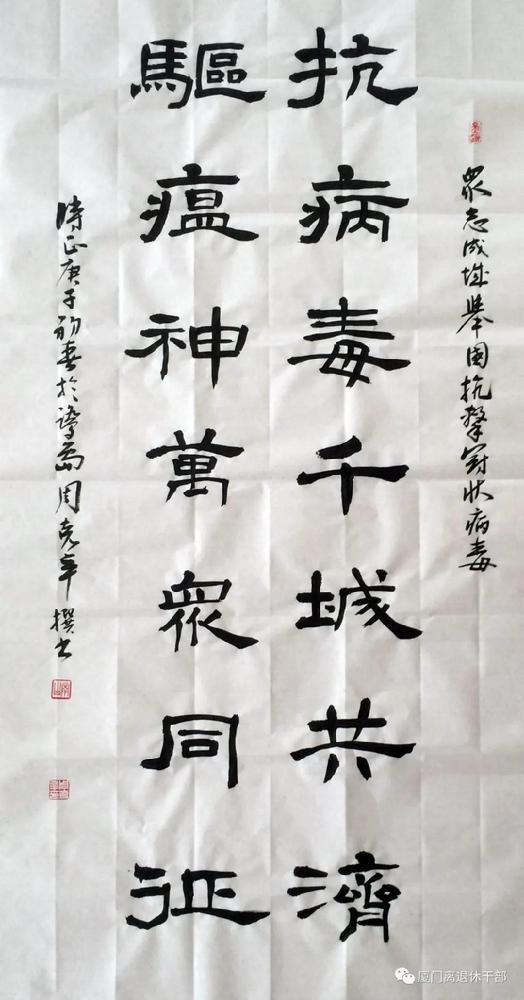 眾志成城舉國抗擊冠狀病毒
抗病毒千城共濟
驅瘟神萬眾同征
時正庚子初春於鷺島周克平撰书
厦门离退休干部